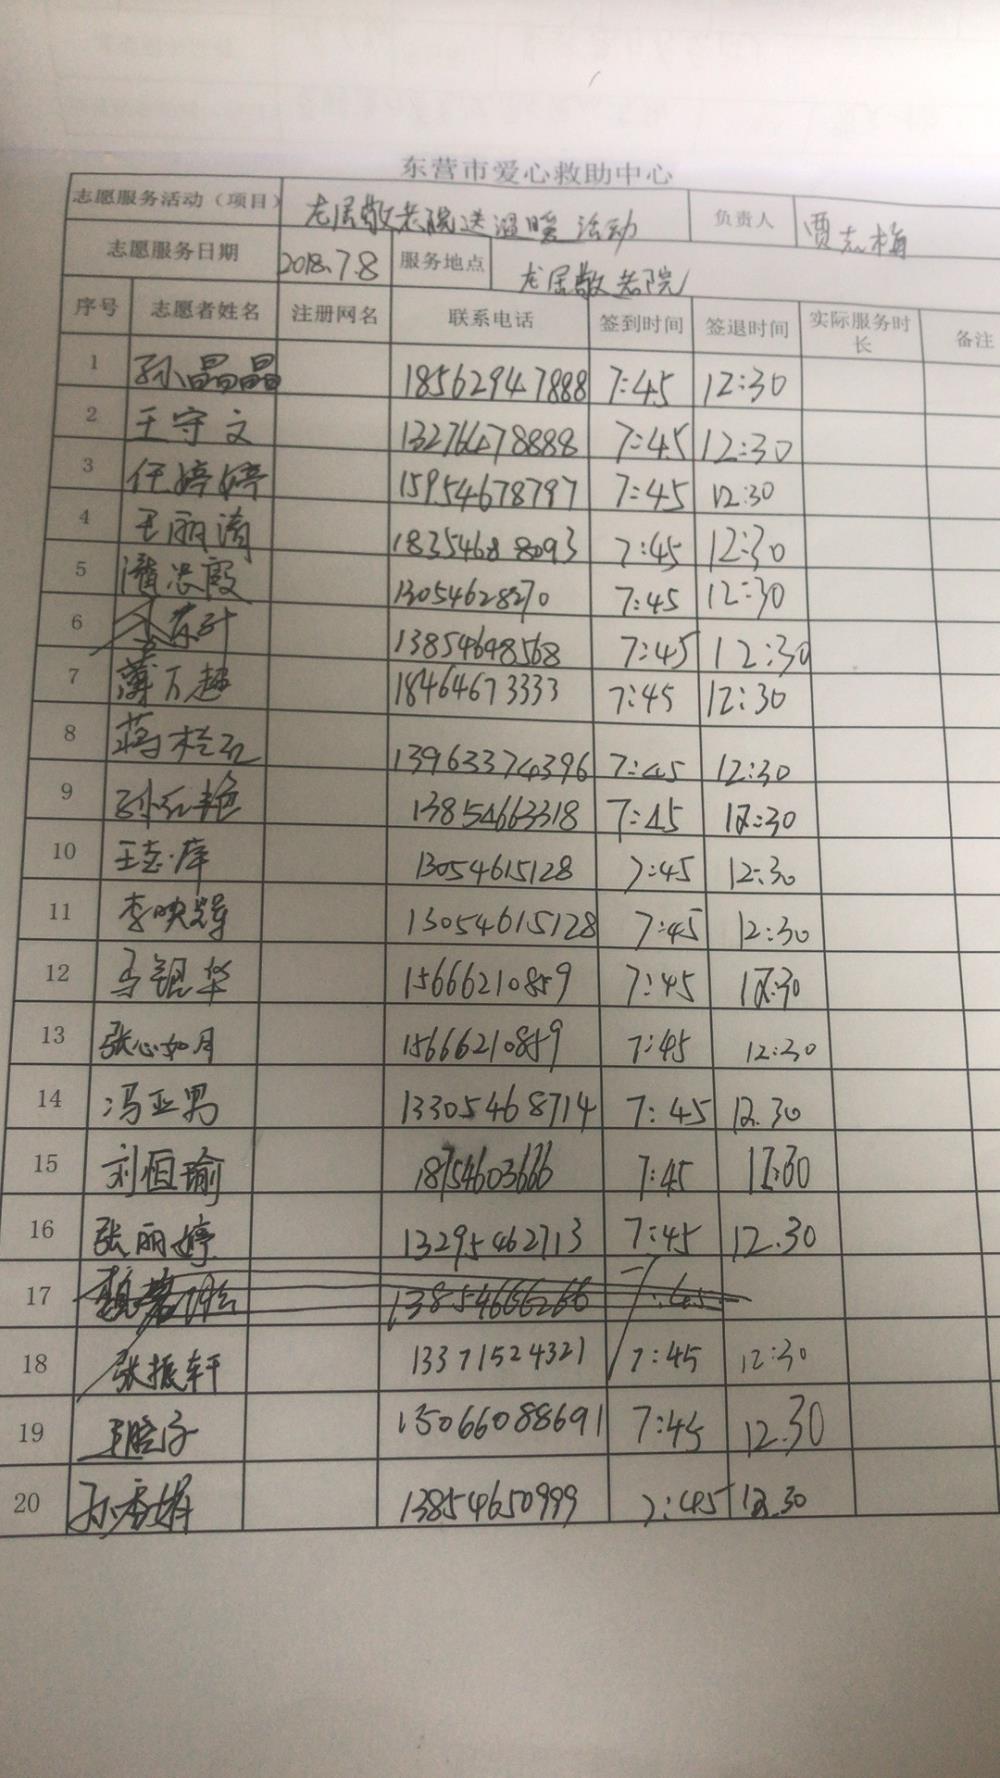 东营市爱心救助中心
志愿服务活动（项目） 龙居敬老院送温暖活动 负责人 贾志梅
志愿服务日期 2018.7.8 服务地点 龙居敬老院
序号 志愿者姓名 注册网名 联系电话 签到时间 签退时间 实际服务时长 备注
1 孙晶晶 18562947888 7:45 12:30
2 王守文 13276478888 7:45 12:30
3 任婷婷 15954678797 7:45 12:30
4 王丽涛 18354688093 7:45 12:30
5 潘忠霞 13054628270 7:45 12:30
6 13854698568 7:45 12:30
7 薄万超 18464673333 7:45 12:30
8 蒋桂红 13963374396 7:45 12:30
9 孙红艳 13854663318 7:45 12:30
10 王志库 13054615128 7:45 12:30
11 李映辉 13054615128 7:45 12:30
12 马银华 15666210859 7:45 12:30
13 张心如月 15666210859 7:45 12:30
14 冯亚男 13305468714 7:45 12.30
15 刘恒瑜 18754603666 7:45 12:30
16 张丽婷 13295462713 7:45 12.30
17 13854666266 7:45
18 张振轩 13371524321 7:45 12:30
19 15066088691 7:45 12.30
20 孙秀娟 13854650999 7:45 12.30